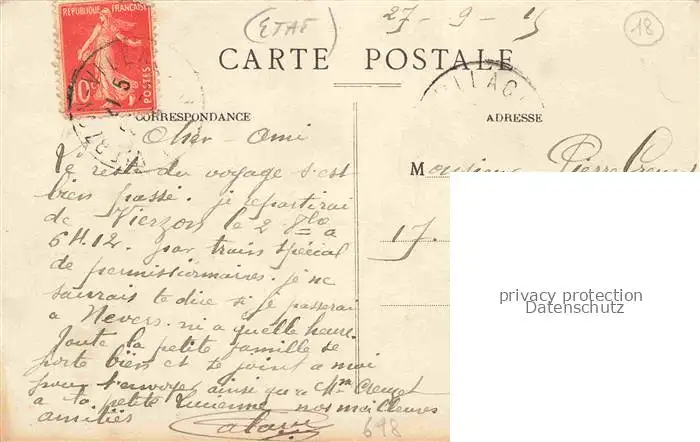 RÉPUBLIQUE FRANÇAISE
10c
POSTES
(ETAT)
27-9-15
18
CARTE POSTALE
CORRESPONDANCE
ADRESSE
Cher Ami
Le reste du voyage s'est
bien passé. je repartirai
de Vierzon le 2 8bre à
6H.12. par train spécial
de permissionnaires. je ne
saurais te dire si je passerai
a Nevers. ni a quelle heure.
Toute la petite famille se
porte bien et se joint a moi
pour t'envoyer ainsi qu'a Mme Creuzet
a ta petite Lucienne nos meilleures
amitiés
Monsieur Pierre
17.
698
privacy protection
Datenschutz